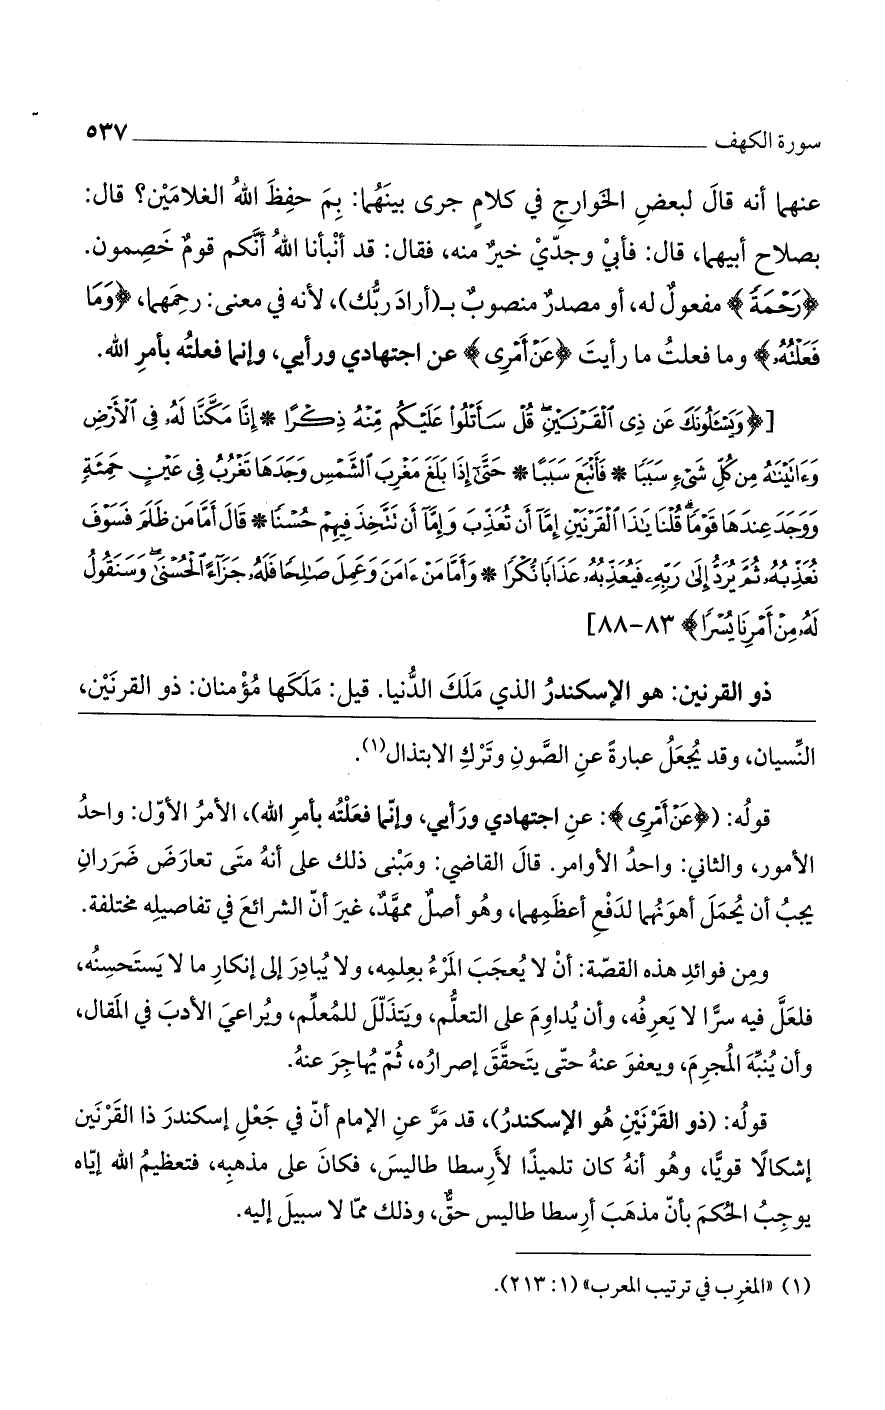 سورة الكهف ٥٣٧
عنهما أنه قالَ لبعضِ الخَوارجِ في كلامٍ جرى بينَهُما: بِمَ حفِظَ اللهُ الغلامَيْن؟ قال:
بصلاح أبيهما، قال: فأبيْ وجدّيْ خيرٌ منه، فقال: قد أنْبأنا اللهُ أنَّكم قومٌ خَصِمون.
﴿رَحْمَةً﴾ مفعولٌ له، أو مصدرٌ منصوبٌ بـ(أرادَ ربُّك)، لأنه في معنى: رحِمَهما، ﴿وَمَا
فَعَلْتُهُۥ﴾ وما فعلتُ ما رأيتَ ﴿عَنْ أَمْرِى﴾ عن اجتهادي ورأيي، وإنما فعلتُه بأمرِ الله.
[﴿وَيَسْـَٔلُونَكَ عَن ذِى ٱلْقَرْنَيْنِ ۖ قُلْ سَأَتْلُواْ عَلَيْكُم مِّنْهُ ذِكْرًا * إِنَّا مَكَّنَّا لَهُۥ فِى ٱلْأَرْضِ
وَءَاتَيْنَٰهُ مِن كُلِّ شَىْءٍ سَبَبًا * فَأَتْبَعَ سَبَبًا * حَتَّىٰٓ إِذَا بَلَغَ مَغْرِبَ ٱلشَّمْسِ وَجَدَهَا تَغْرُبُ فِى عَيْنٍ حَمِئَةٍ
وَوَجَدَ عِندَهَا قَوْمًا ۗ قُلْنَا يَٰذَا ٱلْقَرْنَيْنِ إِمَّآ أَن تُعَذِّبَ وَإِمَّآ أَن تَتَّخِذَ فِيهِمْ حُسْنًا * قَالَ أَمَّا مَن ظَلَمَ فَسَوْفَ
نُعَذِّبُهُۥ ثُمَّ يُرَدُّ إِلَىٰ رَبِّهِۦ فَيُعَذِّبُهُۥ عَذَابًا نُّكْرًا * وَأَمَّا مَنْ ءَامَنَ وَعَمِلَ صَٰلِحًا فَلَهُۥ جَزَآءً ٱلْحُسْنَىٰ ۖ وَسَنَقُولُ
لَهُۥ مِنْ أَمْرِنَا يُسْرًا﴾ ٨٣-٨٨]
ذو القرنين: هو الإسكندرُ الذي مَلَكَ الدُّنيا. قيل: مَلَكَها مُؤْمنان: ذو القرنَيْن،
النِّسيان، وقد يُجعَلُ عبارةً عنِ الصَّونِ وتَرْكِ الابتذال(١).
قولُه: (﴿عَنْ أَمْرِى﴾: عنِ اجتهادي ورَأيي، وإنّما فعَلْتُه بأمرِ الله)، الأمرُ الأوّل: واحدُ
الأمور، والثاني: واحدُ الأوامر. قالَ القاضي: ومَبْنى ذلك على أنهُ متَى تعارَضَ ضَررانِ
يجبُ أن يُحمَلَ أهوَنُهما لدَفْعِ أعظَمِهما، وهُو أصلٌ ممهَّدٌ، غيرَ أنّ الشرائعَ في تفاصيلِه مختلفة.
ومِن فوائدِ هذه القصّة: أنْ لا يُعجَبَ المَرْءُ بعِلمِه، ولا يُبادِرَ إلى إنكارِ ما لا يَستَحسِنُه،
فلعَلَّ فيه سرًّا لا يَعرِفُه، وأن يُداوِمَ على التعلُّم، ويَتذَلّلَ للمُعلِّم، ويُراعيَ الأدبَ في المَقال،
وأن يُنبِّهَ المُجرِمَ، ويعفوَ عنهُ حتّى يتَحقَّقَ إصرارُه، ثُمّ يُهاجِرَ عنهُ.
قولُه: (ذو القَرْنَيْنِ هُو الإسكندرُ)، قد مَرَّ عنِ الإمام أنّ في جَعْلِ إسكندرَ ذا القَرْنَيْن
إشكالًا قويًّا، وهُو أنهُ كان تلميذًا لأرِسطا طاليسَ، فكانَ على مذهبِه، فتعظيمُ الله إيّاه
يوجِبُ الحُكمَ بأنّ مذهَبَ أرِسطا طاليس حقٌّ، وذلك ممّا لا سبيلَ إليه.
(١) «المغرِب في ترتيب المعرب» (١: ٢١٣).